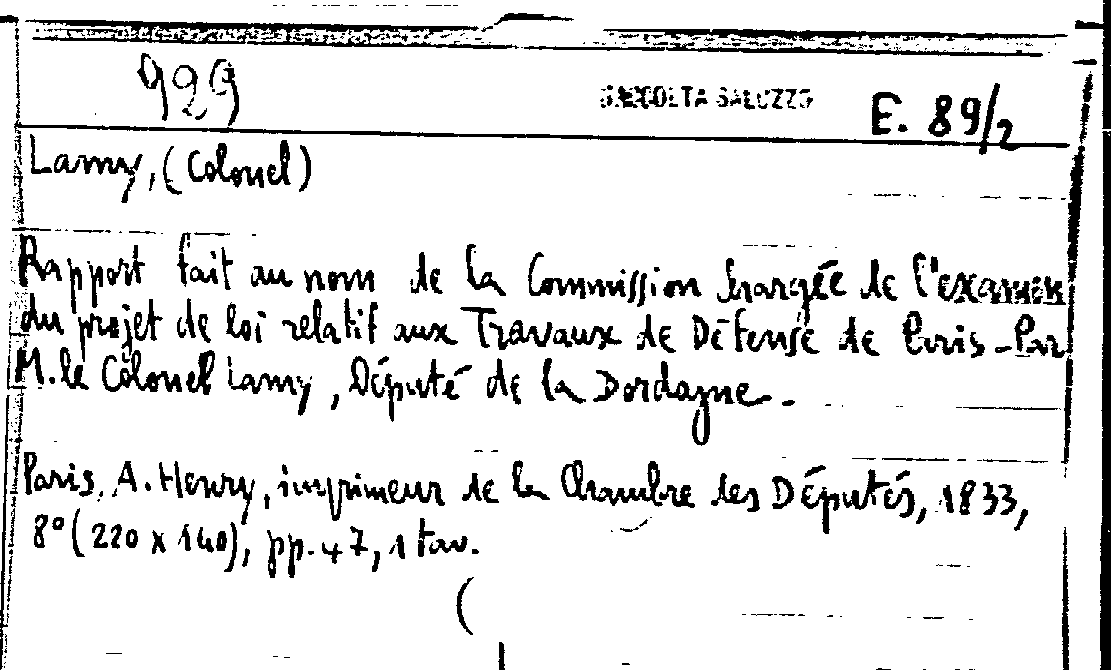 929 RACCOLTA SALUZZO E. 89/2
Lamy, (Colonel)
Rapport fait au nom de la Commission chargée de l'examen
du projet de loi relatif aux Travaux de Défense de Paris - Par
M. le Colonel Lamy, Député de la Dordogne -
Paris, A. Henry, imprimeur de la Chambre des Députés, 1833,
8° (220 x 140), pp. 47, 1 tav.